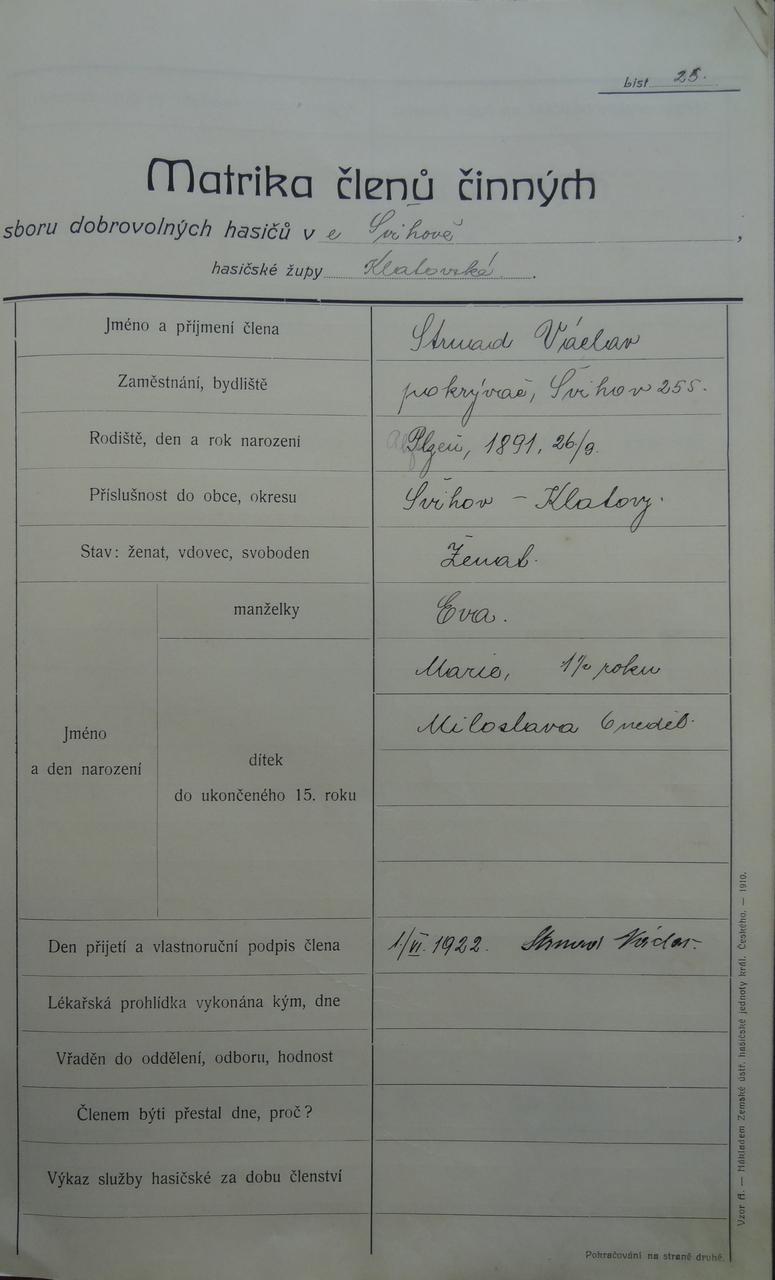 List 25.
Matrika členů činných
sboru dobrovolných hasičů v e Švihově,
hasičské župy Klatovské.
Jméno a příjmení člena Strnad Václav
Zaměstnání, bydliště pokrývač, Švihov 255.
Rodiště, den a rok narození Plzeň, 1891, 26/9.
Příslušnost do obce, okresu Švihov - Klatovy.
Stav: ženat, vdovec, svoboden Ženat.
manželky Eva.
Marie, roku
Miloslava 6 neděl.
Jméno
a den narození
dítek
do ukončeného 15. roku
Den přijetí a vlastnoruční podpis člena 1/VI. 1922. Strnad Václav.
Lékařská prohlídka vykonána kým, dne
Vřaděn do oddělení, odboru, hodnost
Členem býti přestal dne, proč?
Výkaz služby hasičské za dobu členství
Pokračování na straně druhé.
Vzor A. — Nákladem Zemské ústř. hasičské jednoty král. Českého. — 1910.